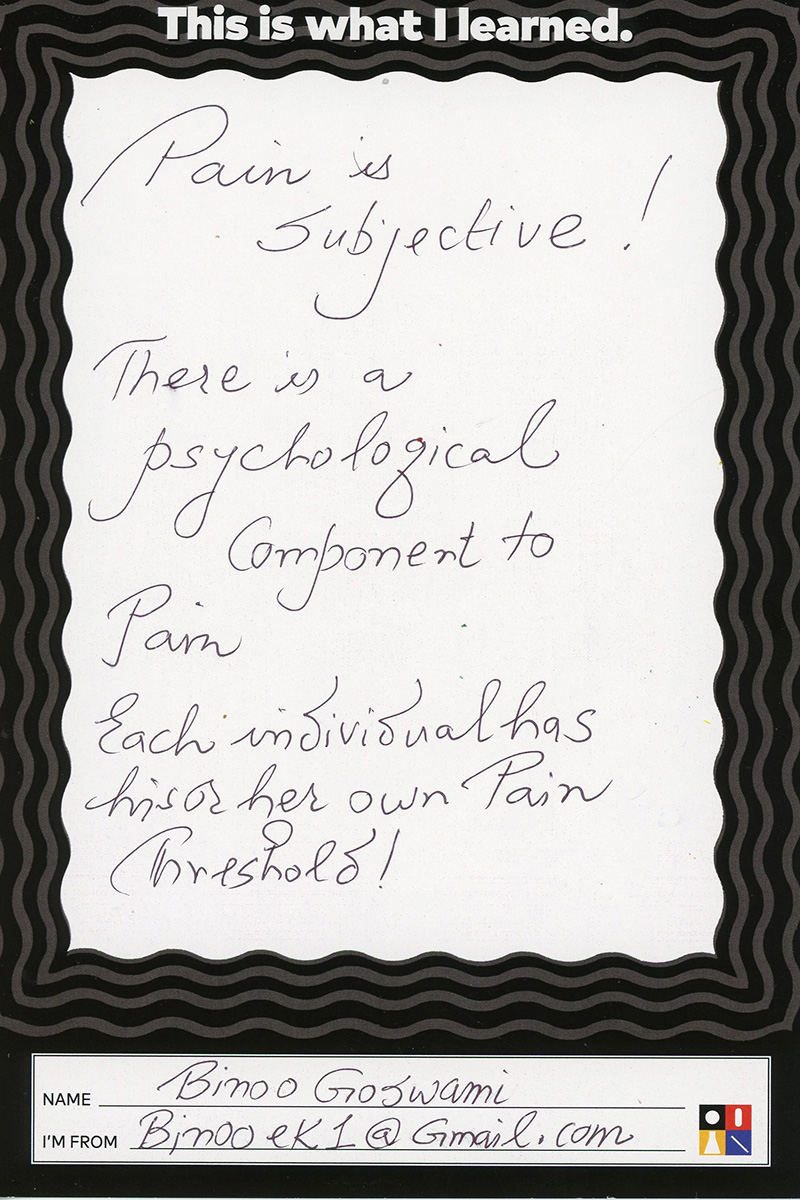 This is what I learned.
Pain is
subjective!
There is a
psychological
Component to
Pain
Each individual has
his or her own Pain
Threshold!
NAME Binoo Goswami
I'M FROM Binooek1@Gmail.com